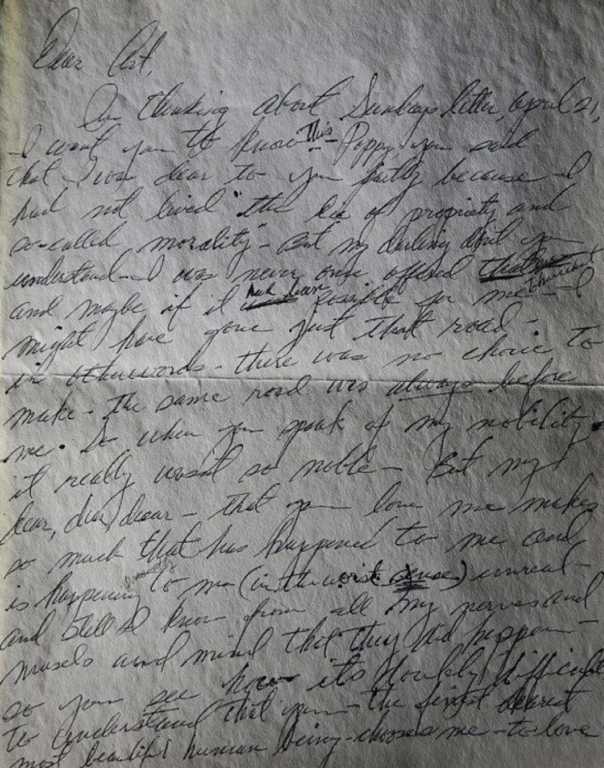 Dear Art,
In thinking about Sundays letter, april 21,
I want you to know this - Poppy you said
that I was dear to you partly because I
had not lived "the lie of propriety and
so-called morality" - But my darling don't you
understand - I was never once offered that
and maybe if it had been possible for me - I
might have gone just that road -
in otherwords - there was no choice to
make - the same road was always before
me. So when you speak of my nobility
it really wasnt so noble - But my
dear, dear, dear - that you love me makes
so much that has happened to me and
is happening to me (in the worst sense) unreal -
and still I know from all my nerves and
musels and mind that they did happen -
so you see how its doubly difficult
to understand that you - the finest dearest
most beautiful human being - chooses me - to love